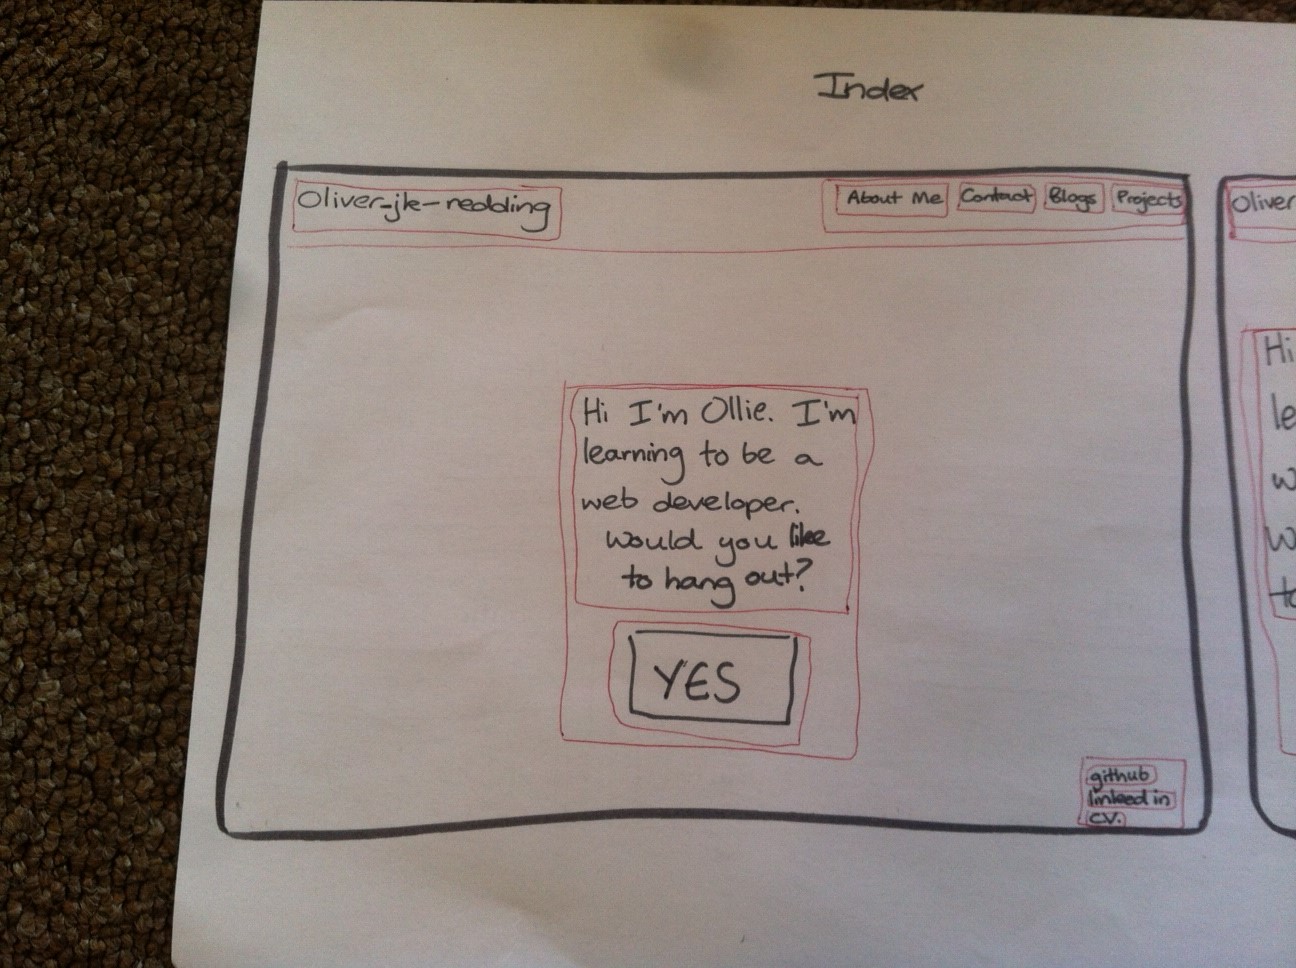 Index
Oliver-jk-redding
About Me Contact Blogs Projects
Hi I'm Ollie. I'm
learning to be a
web developer.
Would you like
to hang out?
YES
github
linkedin
CV.
Oliver
Hi
le
w
W
to